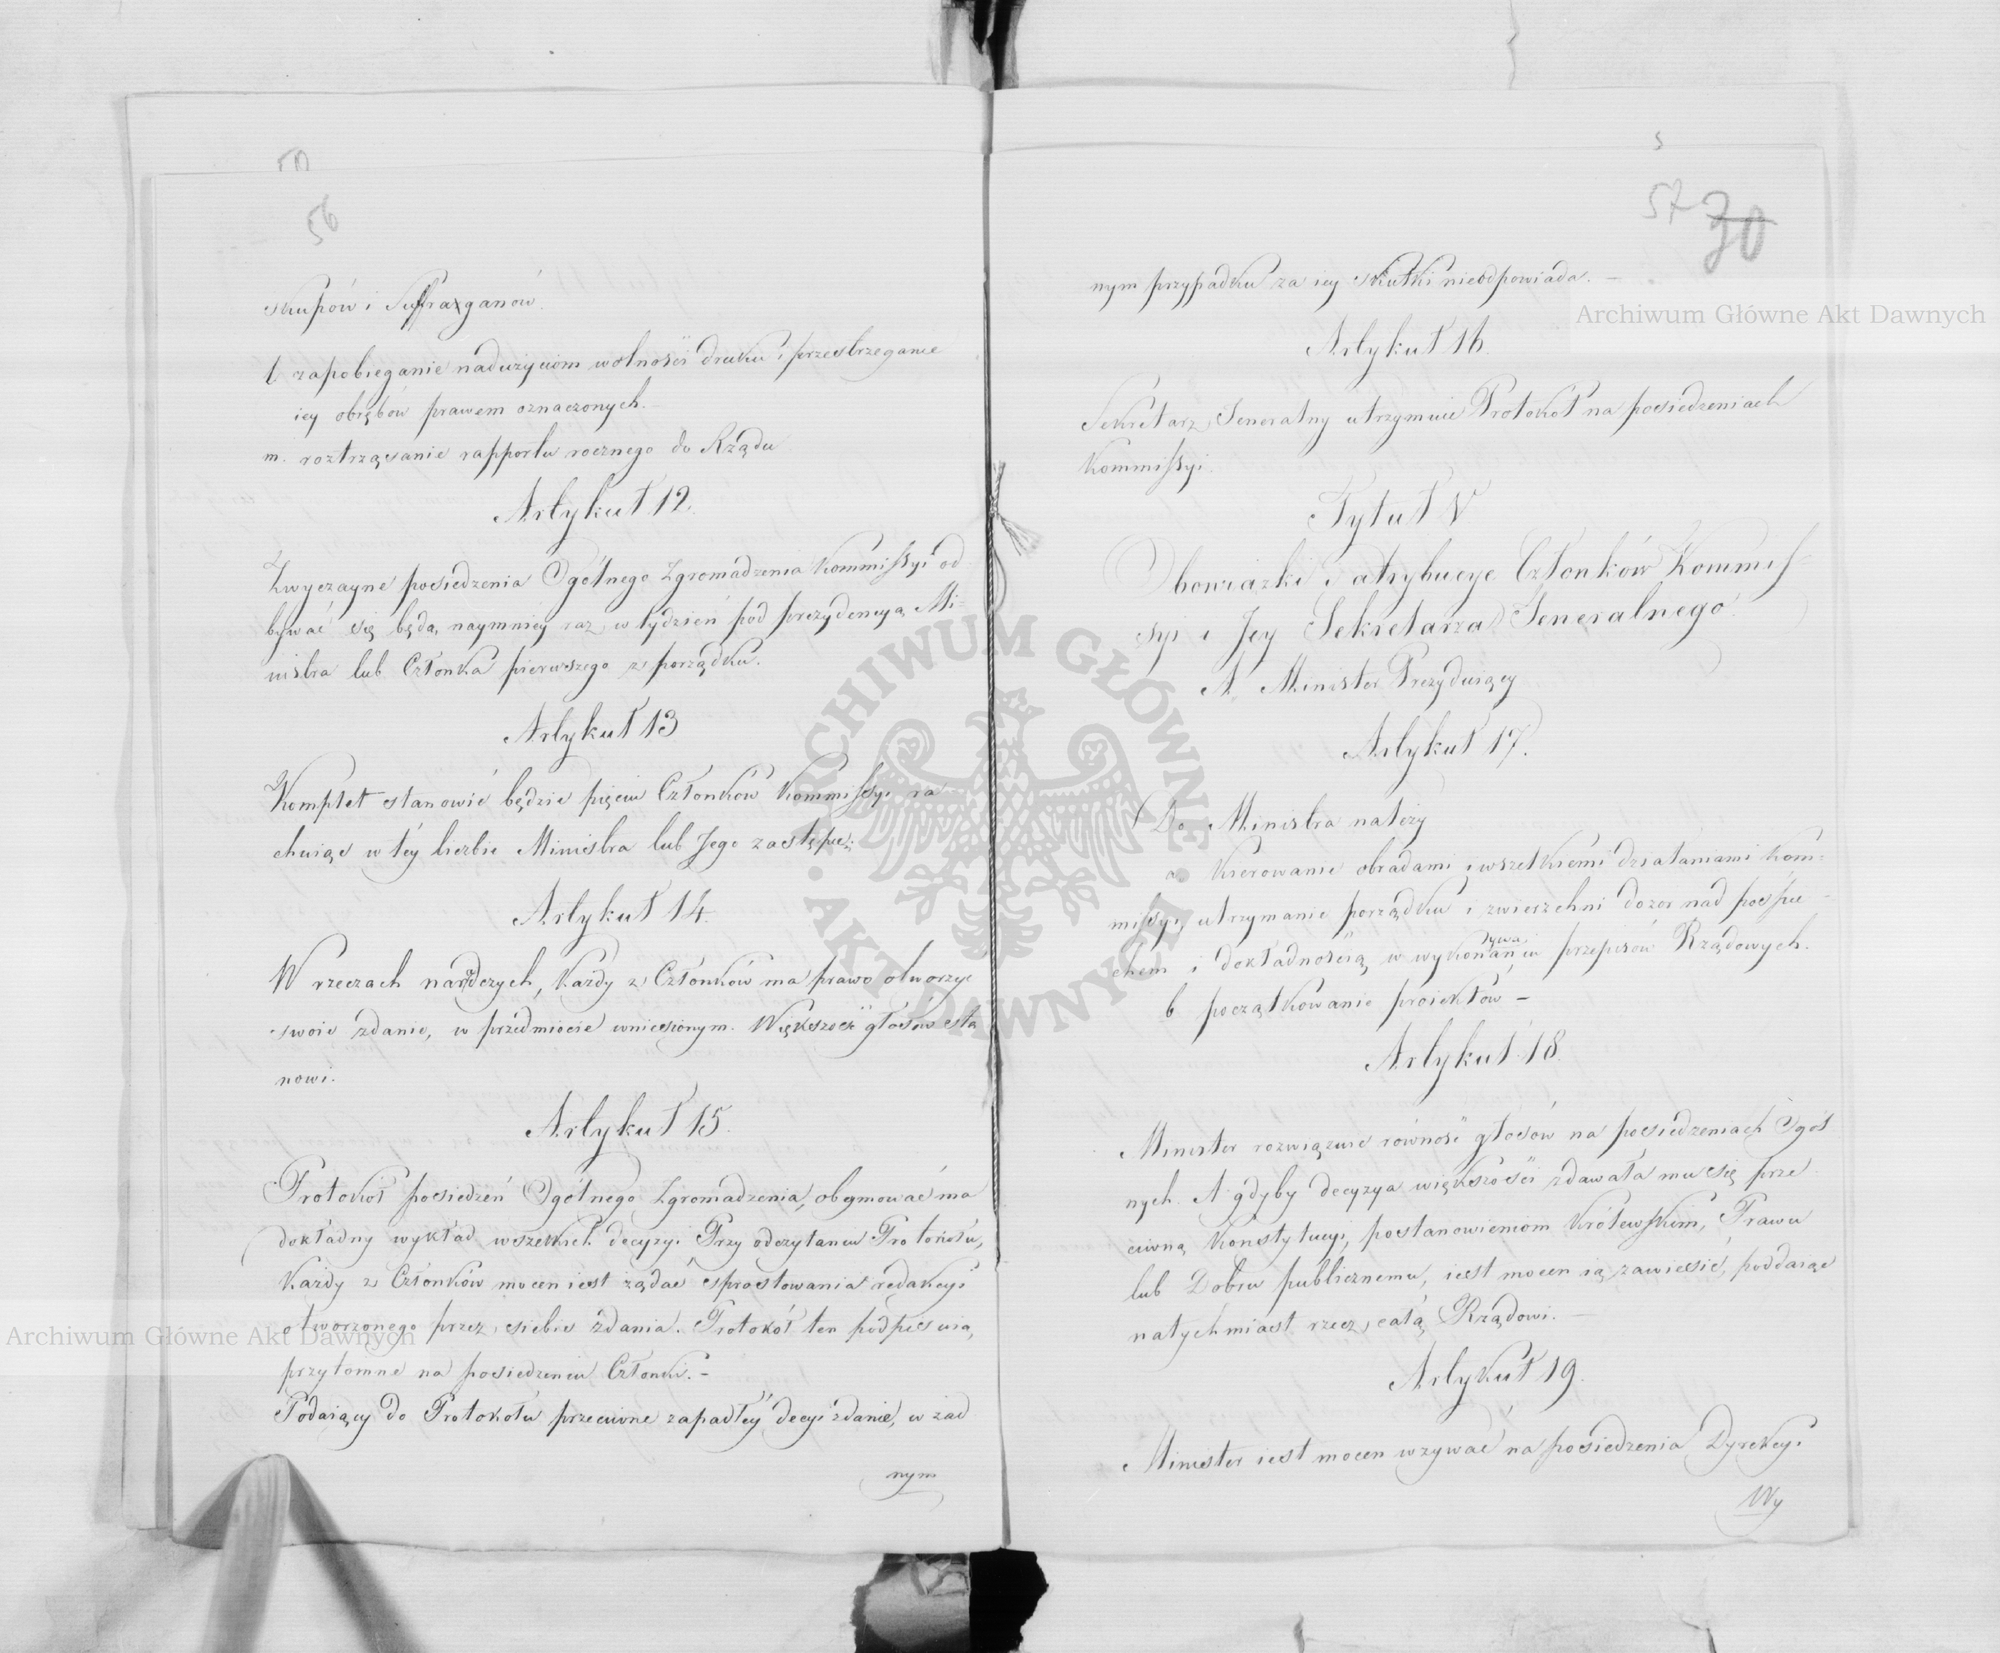 50
56
skupów i Suffraganów.
l zapobieganie nadużyciom wolności druku i przestrzeganie
iey obrębów prawem oznaczonych.
m. roztrząsanie rapportu rocznego do Rządu
Artykuł 12.
Zwyczayne posiedzenia Ogólnego Zgromadzenia Kommissyi od
bywać się będą, naymniey raz w tydzień pod prezydencyą Mi-
nistra lub Członka pierwszego z porządku.
Artykuł 13
Komplet stanowić będzie pięciu Członków Kommissyi ra
chuiąc w téy liczbie Ministra lub Jego zastępcę.
Artykuł 14.
W rzeczach naradczych, każdy z Członków ma prawo otworzyć
swoie zdanie, w przedmiocie wniesionym. Większość głosów sta
nowi.
Artykuł 15.
Protokół posiedzeń Ogólnego Zgromadzenia, obeymować ma
dokładny wykład wszelkich decyzyi Przy odczytaniu Protokołu,
każdy z Członków mocen iest żądać sprostowania redakcyi
otworzonego przez siebie zdania. Protokół ten podpisuią,
przytomne na posiedzeniu Członki. -
Podaiący do Protokołu przeciwne zapadłéy decyi zdanie, w żad
nym
5
57 30
nym przypadku za iey skutki nieodpowiada. -
Artykuł 16.
Sekretarz Generalny utrzymuie Protokół na posiedzeniach
Kommissyi.
Tytuł V
Obowiązki i atrybucye Członków Kommis
syi i Jey Sekretarza Generalnego.
A. Minister Prezyduiący
Artykuł 17.
Do Ministra należy
a. Kierowanie obradami i wszelkiemi działaniami Kom-
missyi, utrzymanie porządku i zwierzchni dozor nad pospie-
chem i dokładnością w wykonywaniu przepisów Rządowych.
b początkowanie proiektów -
Artykuł 18.
Minister rozwiązuie równość głosów na posiedzeniach Ogól
nych. A gdyby decyzya większości zdawała mu się prze
ciwną Konstytucyi, postanowieniom Królewskim, Prawu
lub Dobru publicznemu, iest mocen ią zawiesić, poddaiąc
natychmiast rzecz całą Rządowi. -
Artykuł 19.
Minister iest mocen wzywać na posiedzenia Dyrekcyi
Wy
Archiwum Główne Akt Dawnych
Archiwum Główne Akt Dawnych
ARCHIWUM GŁÓWNE · AKT DAWNYCH ·